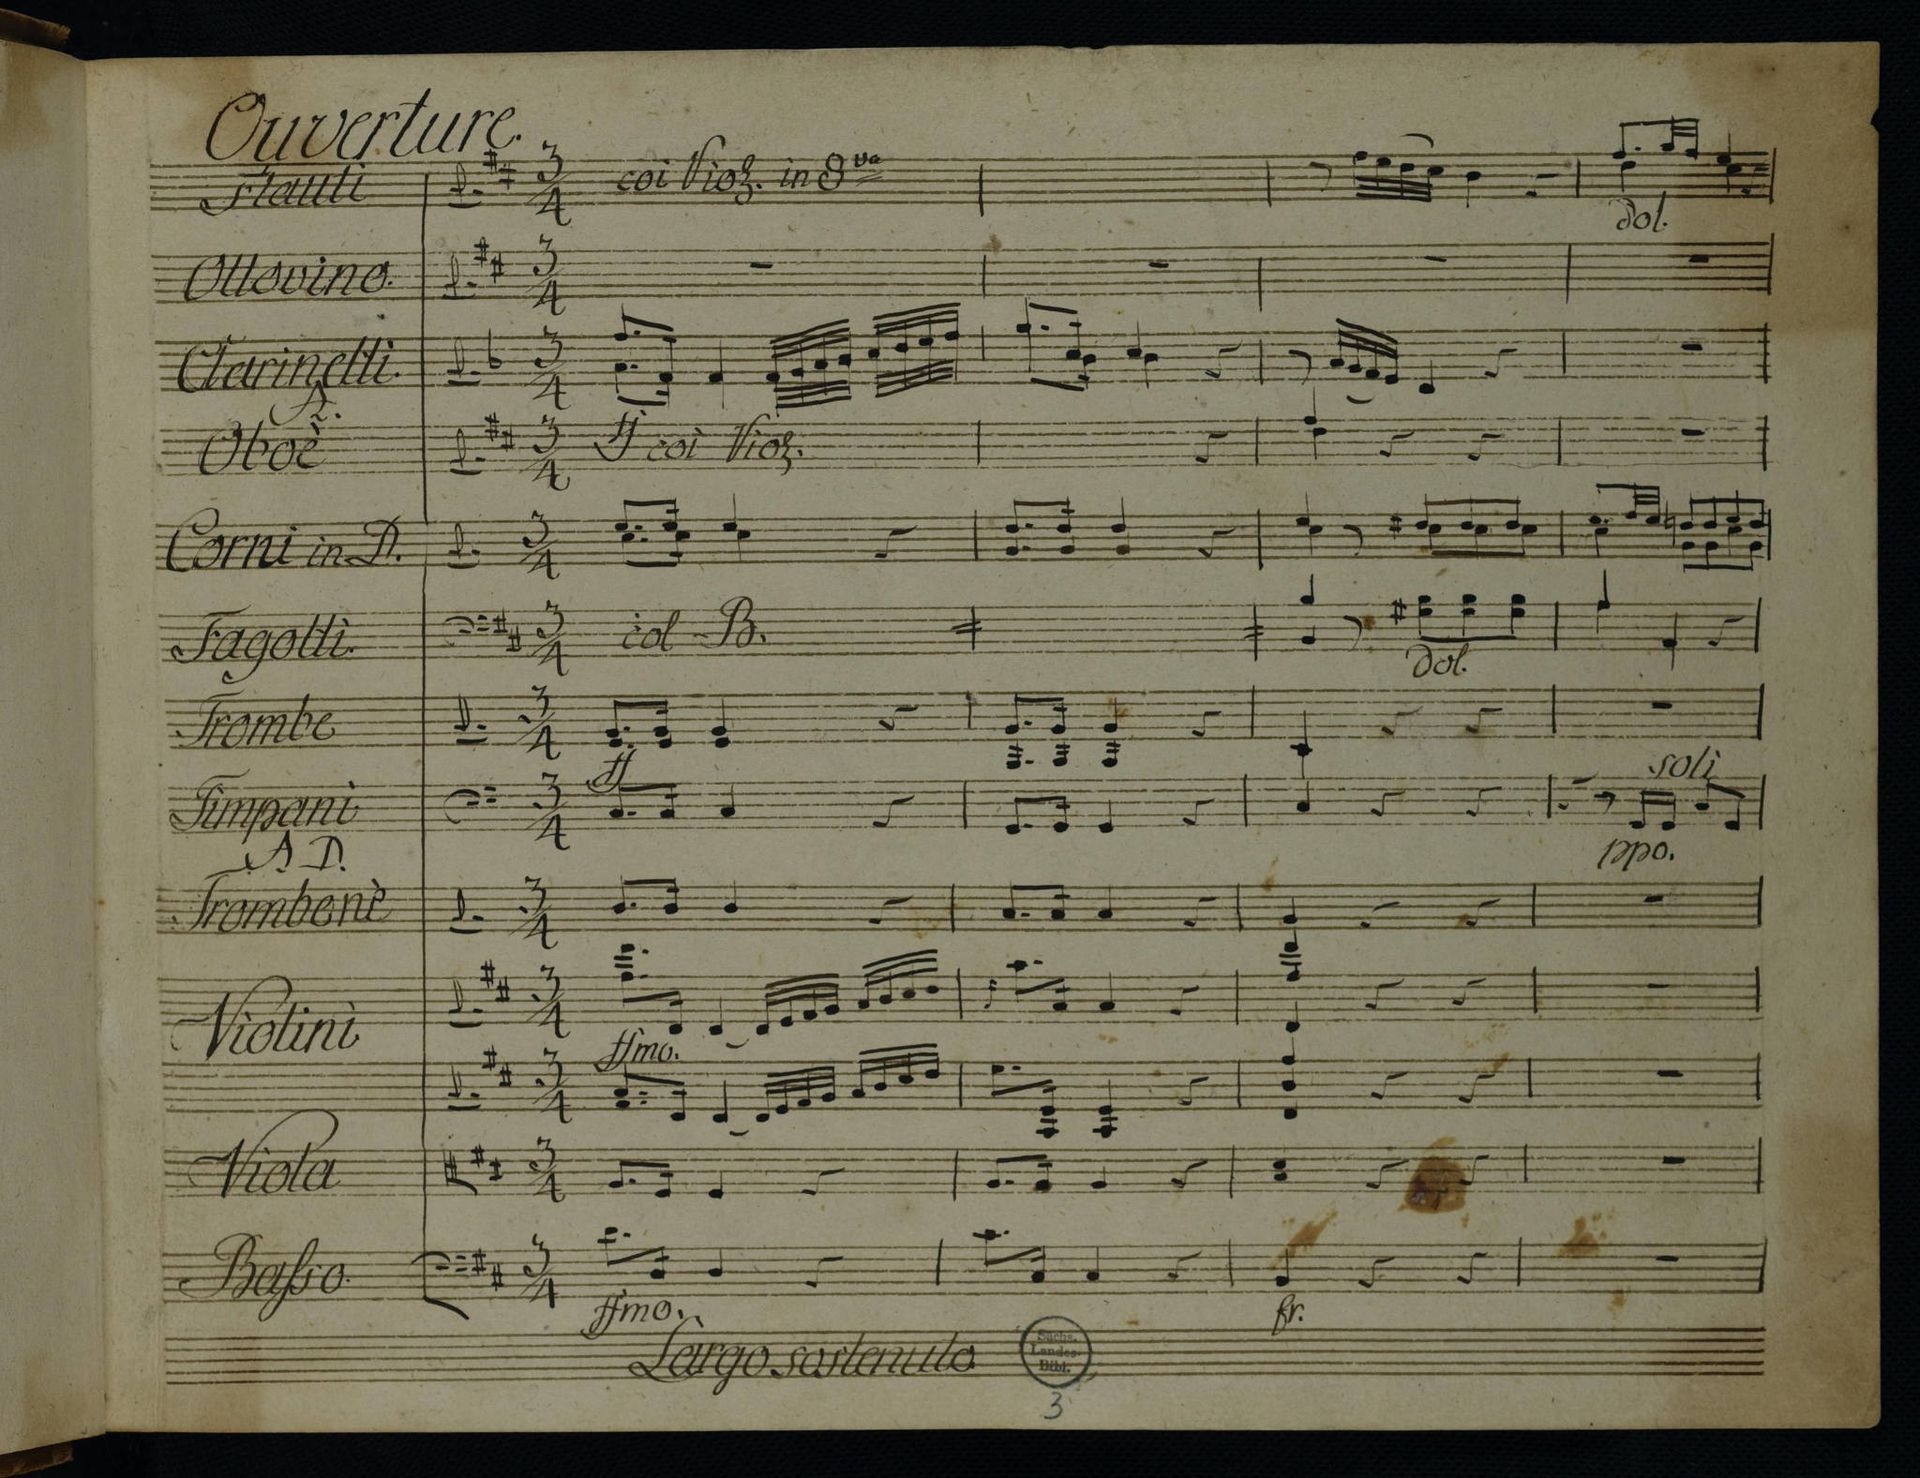 Ouverture.
Flauti 3/4 coi Viol. in 8va
dol.
Ottovino. 3/4
Clarinetti. 3/4
A.
Oboè 3/4 ff coi Viol.
Corni in D. 3/4
Fagotti. 3/4 col B.
dol.
Trombe 3/4
ff
soli
Timpani 3/4
A D.
ppo.
Trombonè 3/4
Violini 3/4
ffmo.
3/4
Viola 3/4
Basso. 3/4
ffmo. fr.
Largo sostenuto
Sächs.
Landes-
Bibl.
3